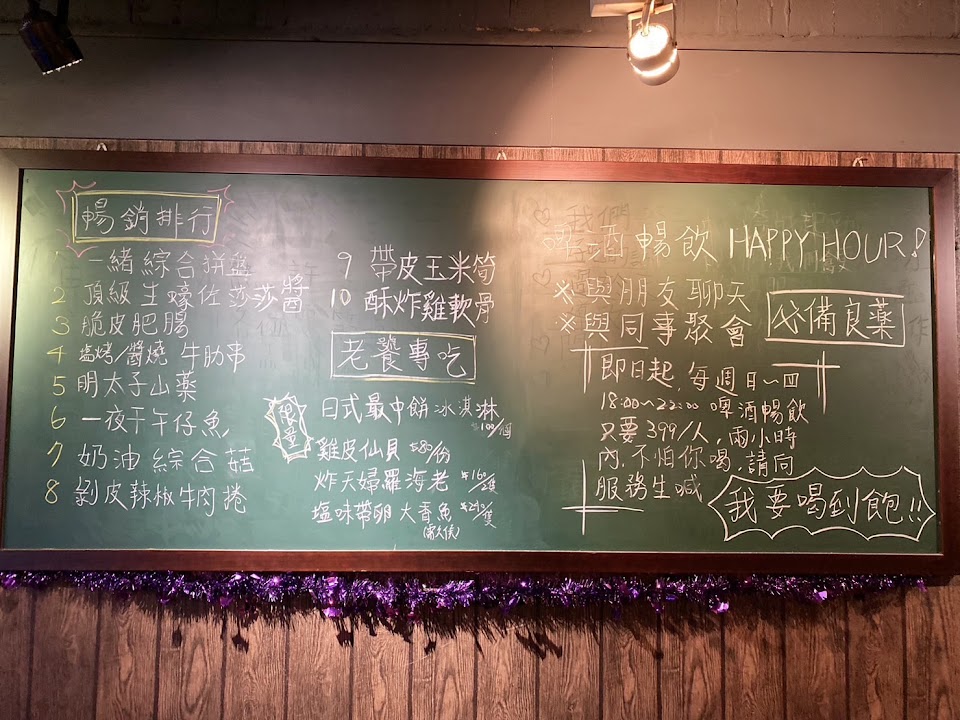 暢銷排行
1 一緒綜合拼盤
2 頂級生蠔佐莎莎醬
3 脆皮肥腸
4 塩烤/醬燒 牛肋串
5 明太子山藥
6 一夜干午仔魚
7 奶油綜合菇
8 剝皮辣椒牛肉捲
9 帶皮玉米筍
10 酥炸雞軟骨
老饕專吃
限量
日式最中餅冰淇淋 $100/個
雞皮仙貝 $80/份
炸天婦羅海老 $160/2隻
塩味帶卵大香魚 $290/隻
(需久候)
啤酒暢飲 HAPPY HOUR!
※與朋友聊天
※與同事聚會
必備良藥
即日起, 每週日~四
18:00~22:00 啤酒暢飲
只要399/人, 兩小時
內, 不怕你喝, 請向
服務生喊
我要喝到飽!!